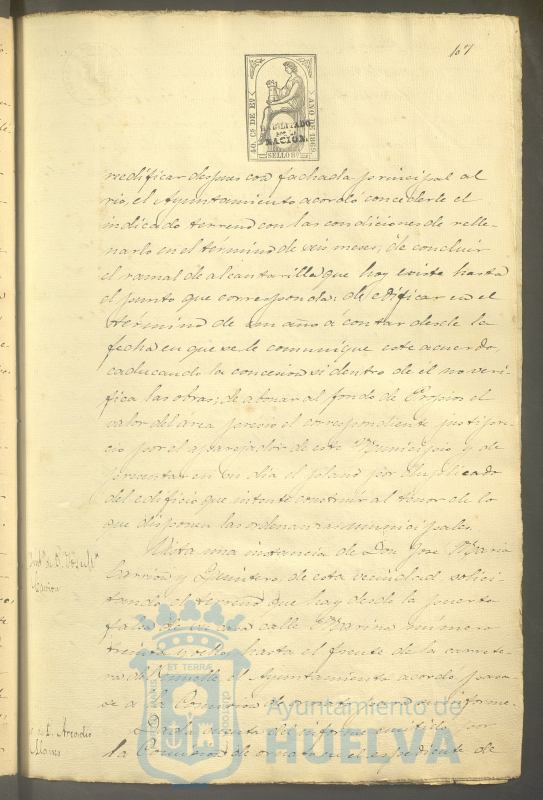 107
40 Cs DE Eº
AÑO DE 1869
HABILITADO
POR LA
NACION.
SELLO 8º
reedificar despues con fachada principal al
rio, el Ayuntamiento acordó concederle el
indicado terreno con las condiciones de relle-
narlo en el término de seis meses; de concluir
el ramal de alcantarilla que hoy existe hasta
el punto que corresponda: de edificar en el
término de un año á contar desde la
fecha en que se le comunique este acuerdo,
caducando la concesion si dentro de él no veri-
fica las obras; de abonar al fondo de Propios el
valor del área previo el correspondiente justipre-
cio por el aparejador de este Municipio y de
presentar en su dia el plano por duplicado
del edificio que intente construir al tenor de lo
que disponen las ordenanzas municipales.
Vista una instancia de Don José Maria
Carrion y Quintero, de esta vecindad solici-
tando el terreno que hay desde la puerta
falsa de su casa calle Marina número
treinta y ocho hasta el frente de la carrete-
ra del Muelle el Ayuntamiento acordó pasa-
se á la Comision de ornato para su informe.
Dada cuenta del informe emitido por
la Comision de ornato en el espediente de
Carrion
Arcadio
ET TERRÆ
Ayuntamiento de
HUELVA